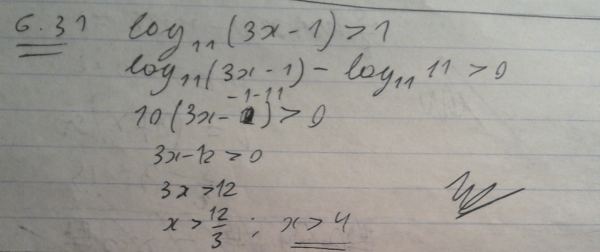 6.31 log₁₁(3x-1)>1
log₁₁(3x-1) - log₁₁ 11 > 0
10(3x-1-11)>0
3x-12>0
3x>12
x>12/3; x>4